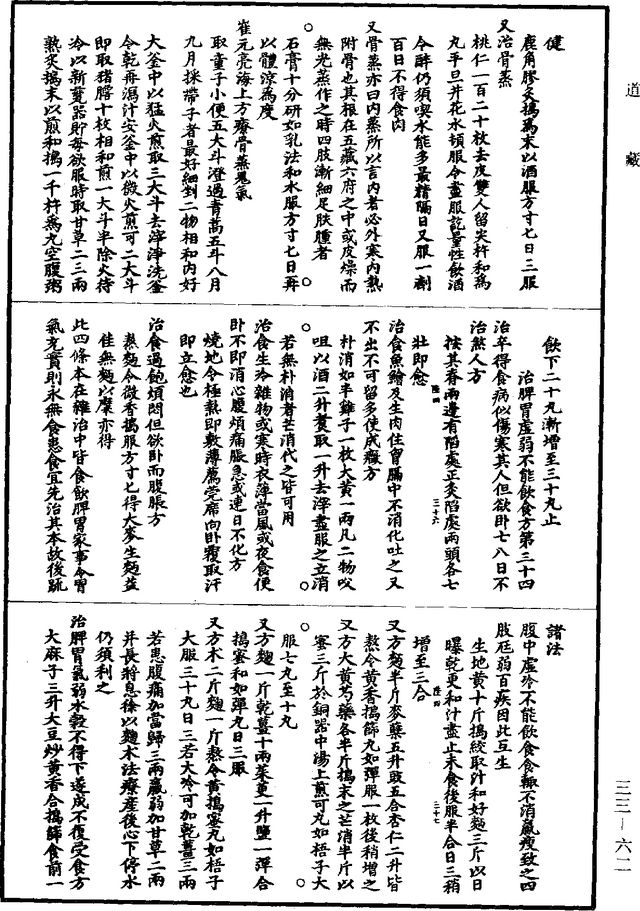 道藏
健
鹿角膠炙擣爲末以酒服方寸七日三服
又治骨蒸
桃仁一百二十枚去皮雙人留尖杵和爲
丸平旦井花水頓服令盡服訖量性飲酒
令醉仍須喫水能多最精隔日又服一劑
百日不得食肉
又骨蒸亦曰内蒸所以言内者必外寒内熱
附骨也其根在五藏六府之中或皮燥而
無光蒸作之時四肢漸細足趺腫者
石膏十分研如乳法和水服方寸七日再
以體涼爲度
崔元亮海上方療骨蒸鬼氣
取童子小便五大斗澄過青蒿五斗八月
九月採帶子者最好細剉二物相和内好
大釜中以猛火煎取三大斗去滓淨洗釜
令乾再瀉汁安釜中以微火煎可二大斗
即取猪膽十枚相和煎一大斗半除火待
冷以新甆器貯每欲服時取甘草二三兩
熟炙擣末以煎和擣一千杵爲丸空腹粥
飲下二十丸漸增至三十丸止
治脾胃虛弱不能飲食方第三十四
治卒得食病似傷寒其人但欲卧七八日不
治煞人方
按其脊兩邊有陷處正灸陷處兩頭各七
壯即愈
三十六
治食魚鱠及生肉住胷膈中不消化吐之又
不出不可留多使成癥方
朴消如半雞子一枚大黃一兩凡二物㕮
咀以酒二升煑取一升去滓盡服之立消
若無朴消者芒消代之皆可用
治食生冷雜物或寒時衣薄當風或夜食便
卧不即消心腹煩痛脹急或連日不化方
燒地令極熱即敷薄薦莞席向卧覆取汗
即立愈也
治食過飽煩悶但欲卧而腹脹方
熬麵令微香擣服方寸七得大麥生麵益
佳無麵以糜亦得
此四條本在雜治中皆食飲脾胃家事令胃
氣充實則永無食患食宜先治其本故後䟽
諸法
腹中虛冷不能飲食食輙不消羸瘦致之四
肢尫弱百疾因此互生
生地黃十斤擣絞取汁和好麵三斤以日
曝乾更和汁盡止未食後服半合日三稍
增至三合
三十七
又方麵半斤麥蘗五升豉五合杏仁二升皆
熬令黃香擣篩丸如彈服一枚後稍增之
又方大黃芍藥各半斤擣末之芒消半斤以
蜜三斤於銅器中湯上煎可丸如梧子大
服七丸至十丸
又方麵一斤乾薑十兩茱萸一升鹽一彈合
擣蜜和如彈丸日三服
又方朮二斤麵一斤熬令黃擣蜜丸如梧子
大服三十丸日三若大冷可加乾薑三兩
若患腹痛加當歸三兩羸弱加甘草二兩
并長將息徐以麵朮法療産後心下停水
仍須利之
治脾胃氣弱水穀不得下遂成不復受食方
大麻子三升大豆炒黃香合擣篩食前一
三三—六二